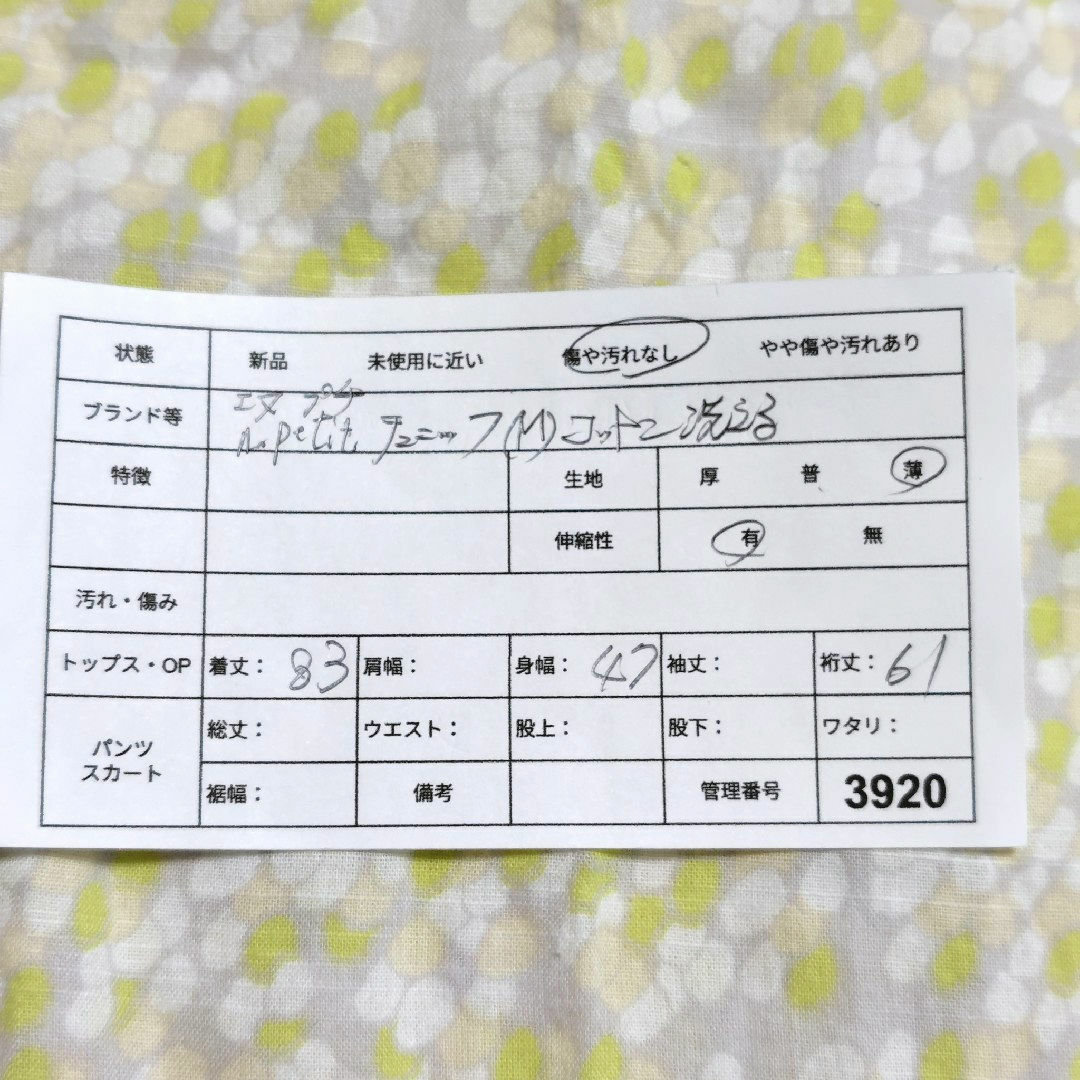 状態 新品 未使用に近い 傷や汚れなし やや傷や汚れあり
エヌ プチ
ブランド等 n.petit チュニック(M)コットン洗える
特徴 生地 厚 普 薄
伸縮性 有 無
汚れ・傷み
トップス・OP 着丈: 83 肩幅: 身幅: 47 袖丈: 裄丈: 61
パンツ
スカート
総丈: ウエスト: 股上: 股下: ワタリ:
裾幅: 備考 管理番号 3920